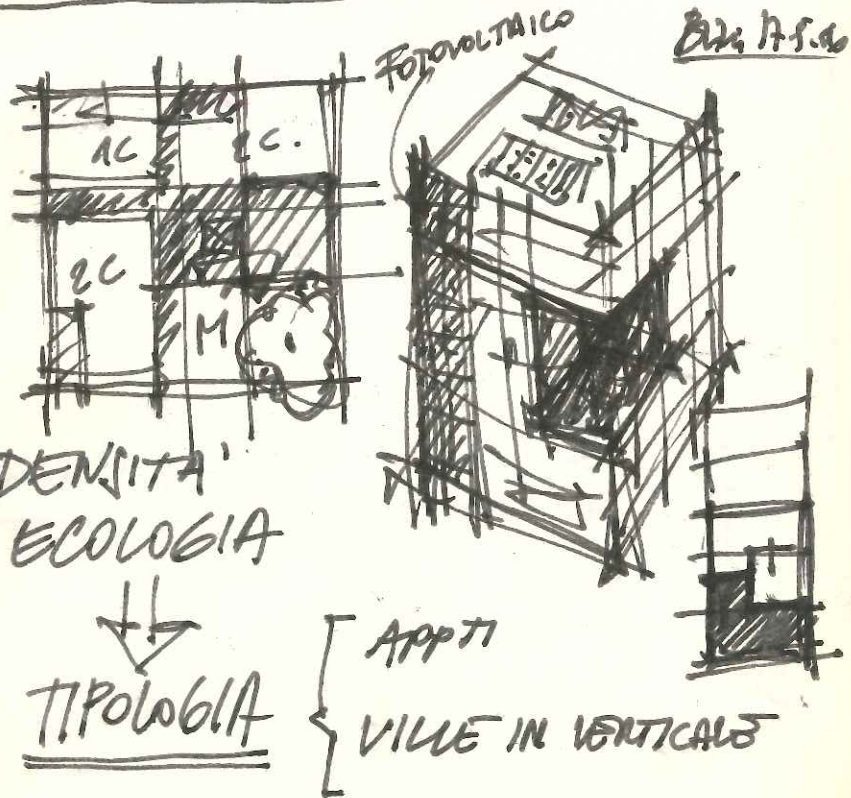 FOTOVOLTAICO
1C 2C.
2C
M
DENSITA'
ECOLOGIA
TIPOLOGIA
APPTI
VILLE IN VERTICALE